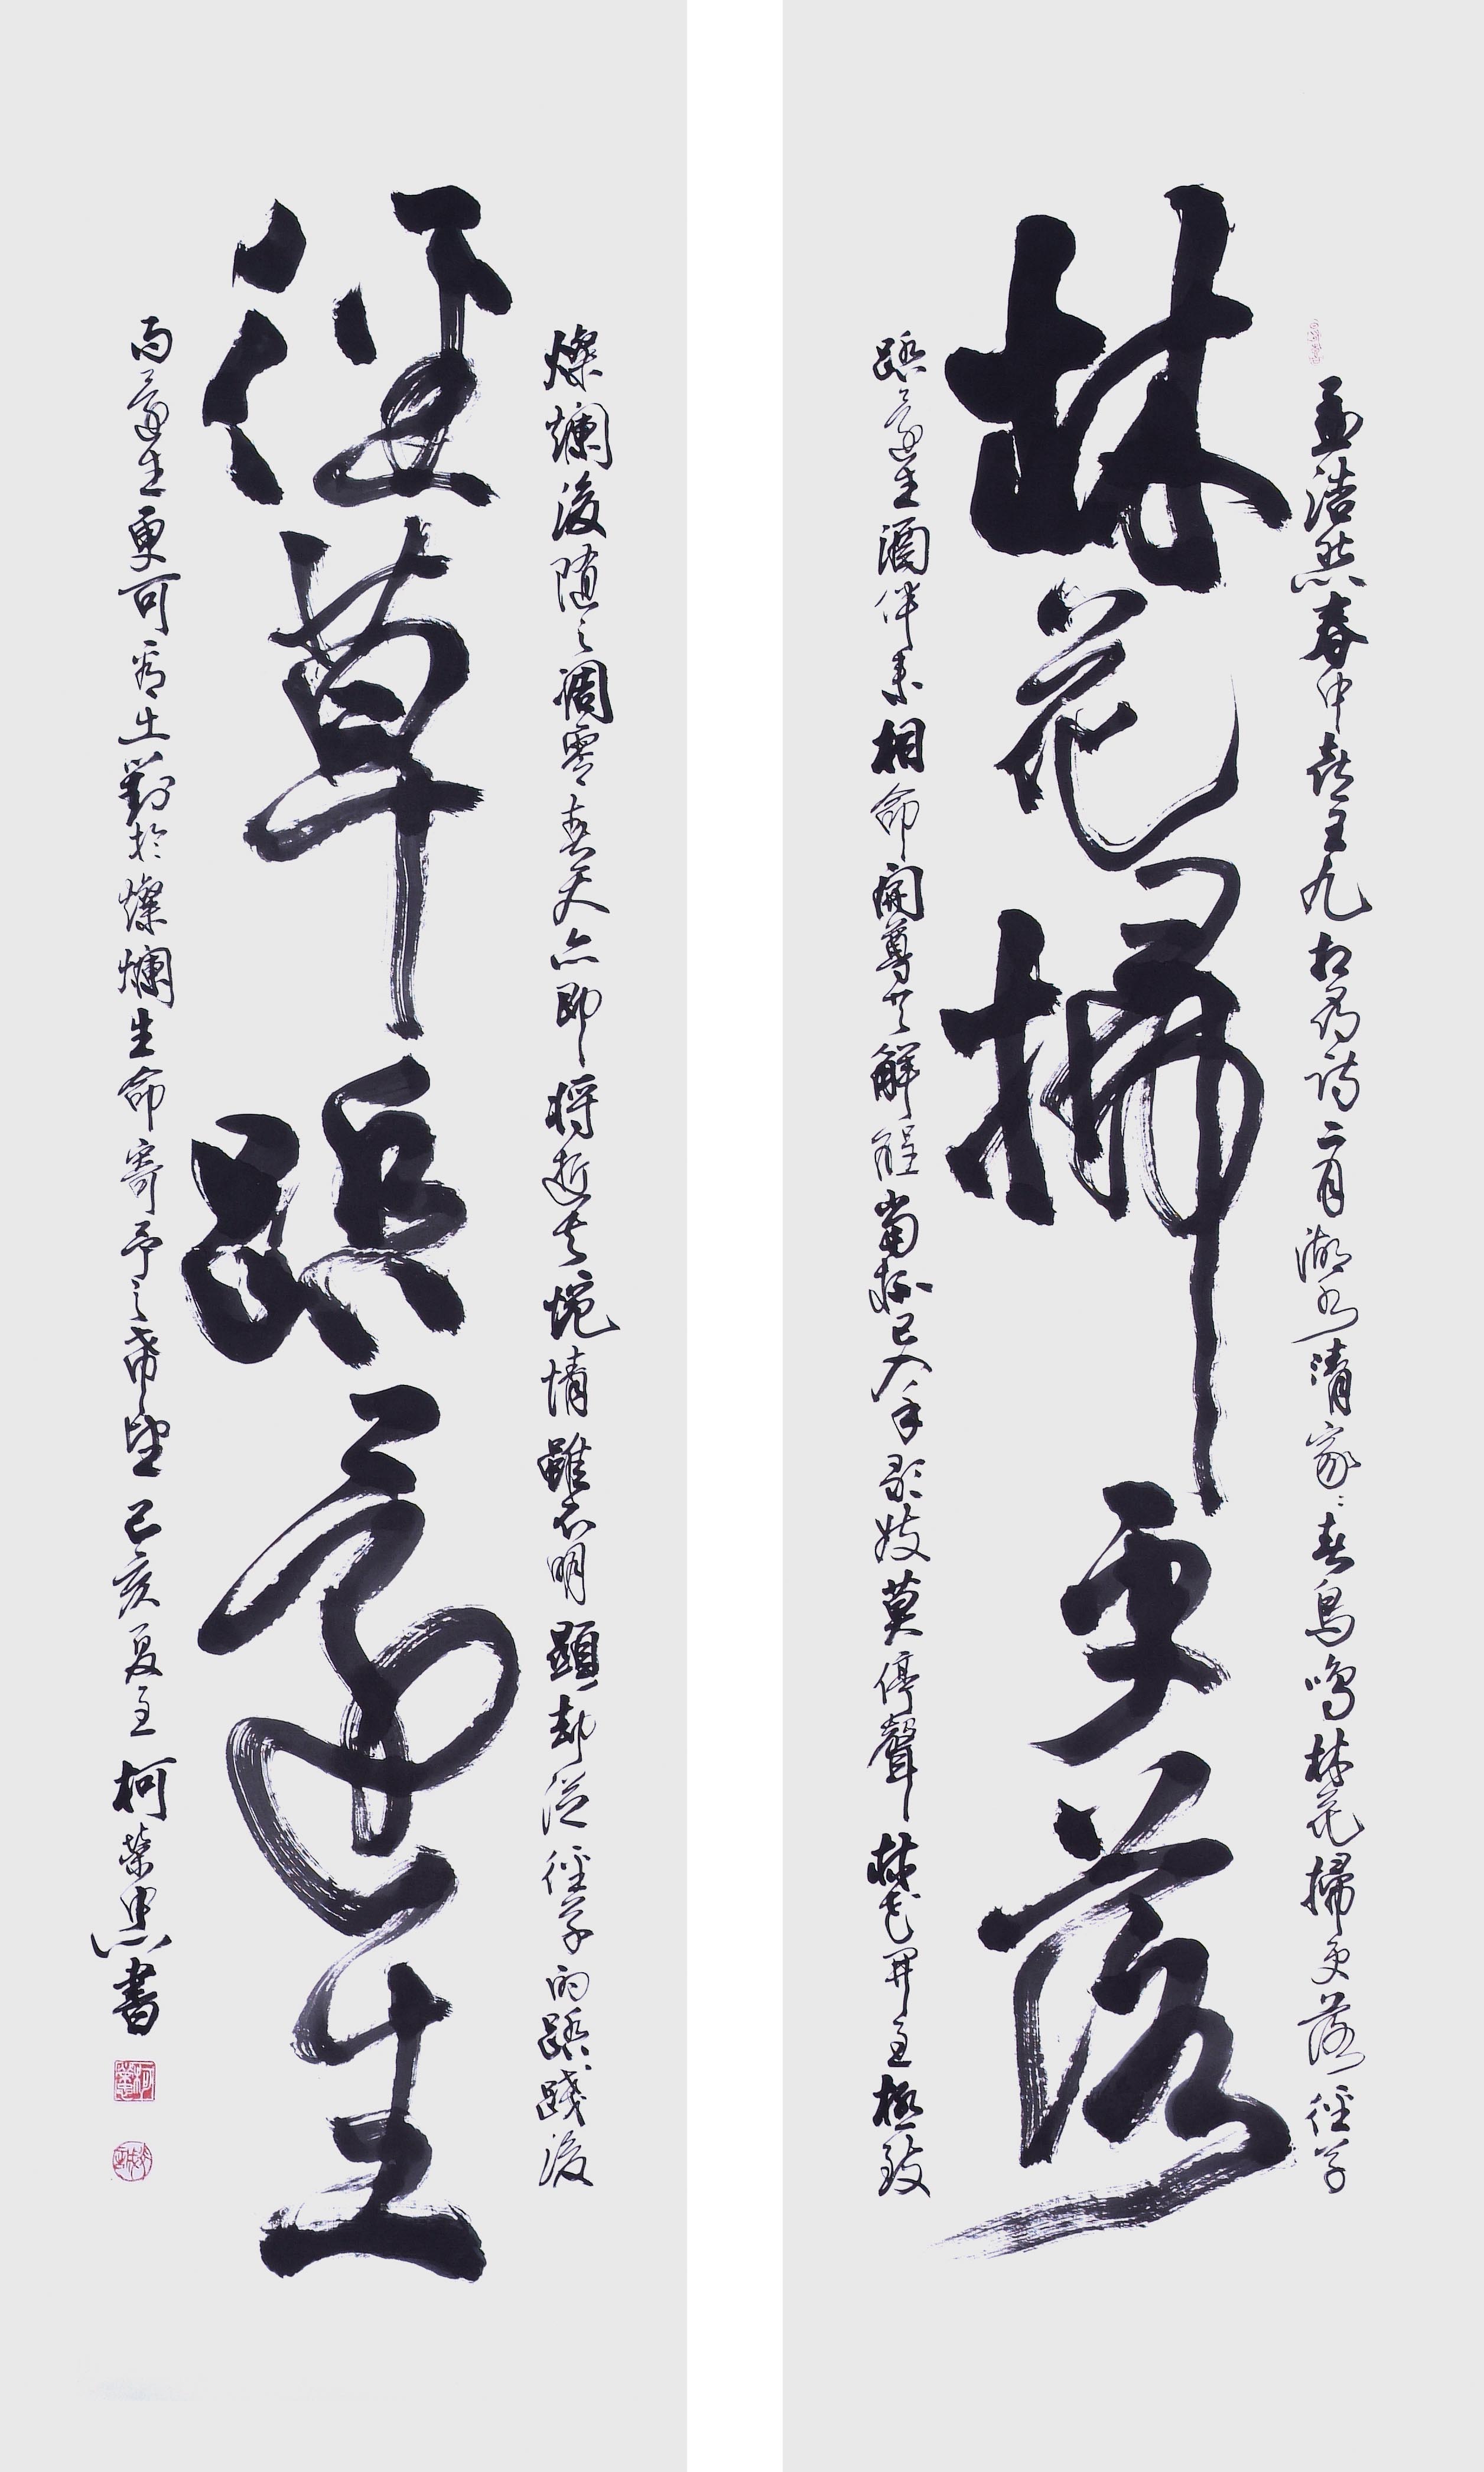 孟浩然春中喜王九相尋詩二月湖水清家々春鳥鳴林花掃更落徑草
林花掃更落
踏還生酒伴來相命開尊共解酲當杯已入手歌妓莫停聲林花開至極致
燦爛後隨之調零春天亦即將逝去惋情雖不明顯却從徑草的踏踐後
徑草踏還生
而還生更可看出對於燦爛生命寄予之希望己亥夏至柯榮忠書